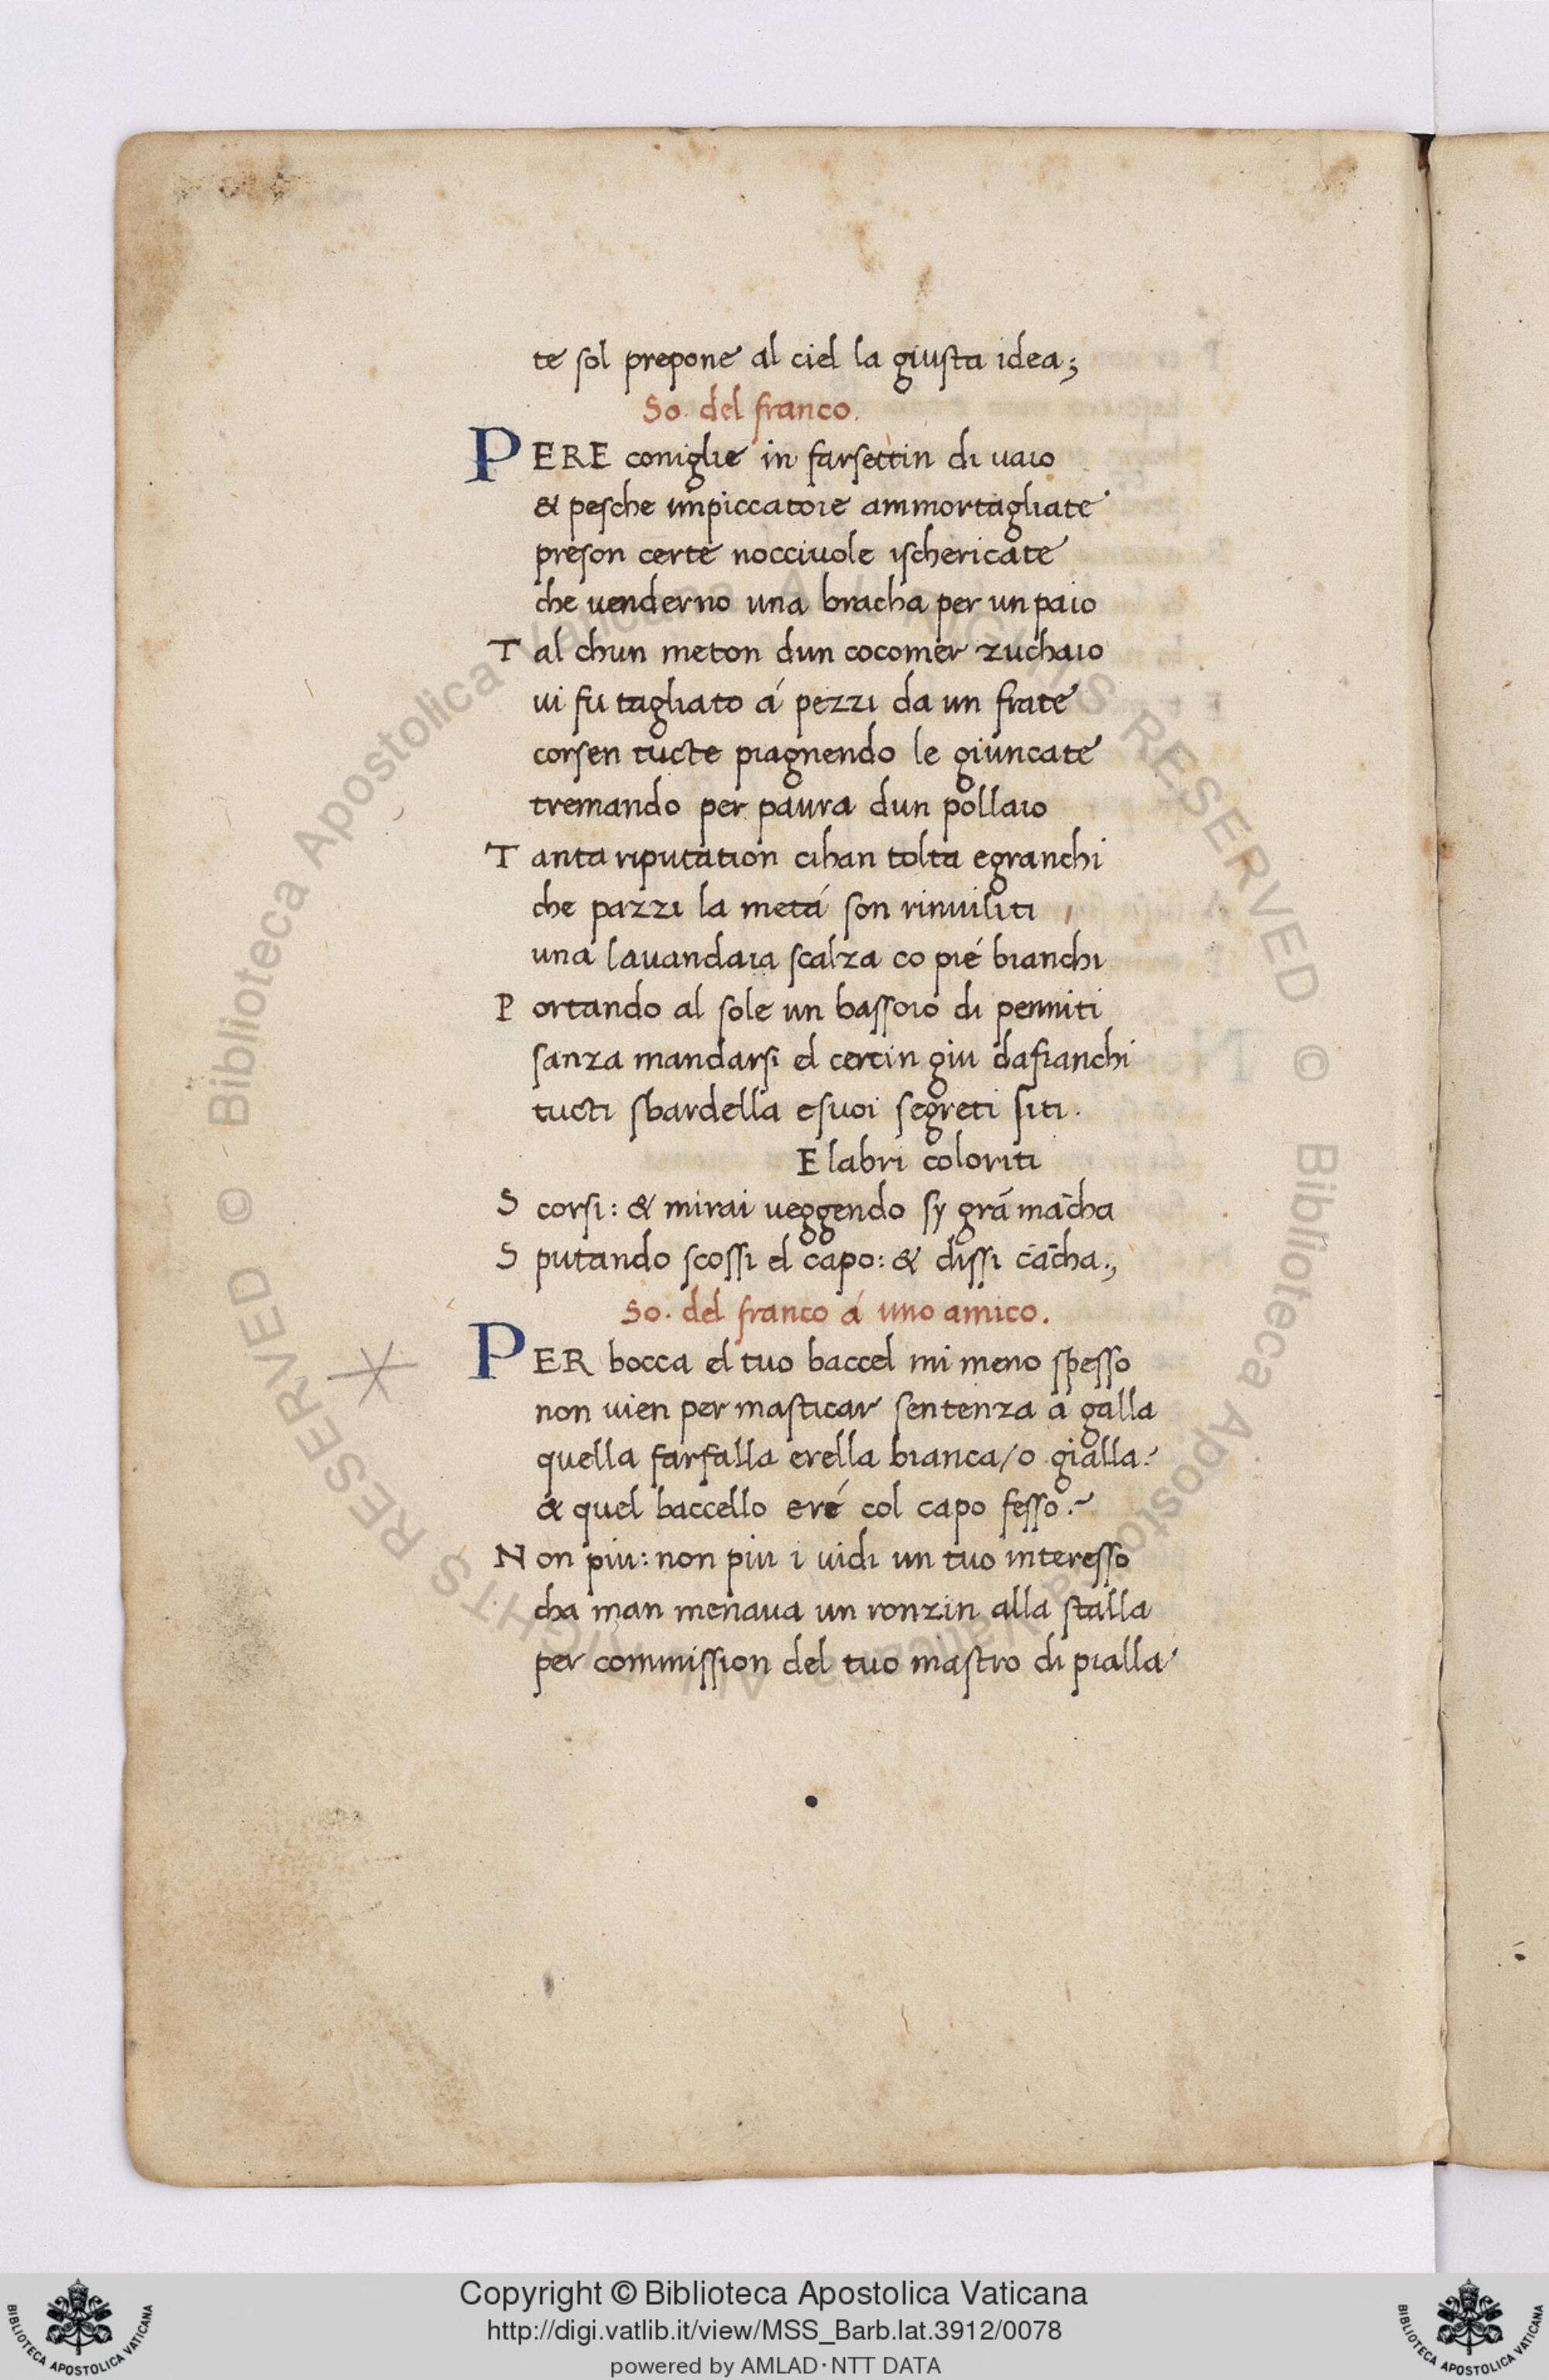 te sol prepone al ciel la giusta idea;
So. del franco.
PERE coniglie in farsettin di uaio
& pesche impiccatoie ammortagliate
preson certe nocciuole ischericate
che uenderno una bracha per un paio
Tal chun meton dun cocomer zuchaio
ui fu tagliato á pezzi da un frate
corsen tucte piagnendo le giuncate
tremando per paura dun pollaio
Tanta riputation cihan tolta egranchi
che pazzi la metá son rinuiliti
una lauandaia scalza co pié bianchi
Portando al sole un bassoio di penniti
sanza mandarsi el cercin giu dafianchi
tucti sbardella esuoi segreti siti.
E labri coloriti
Scorsi: & mirai ueggendo sy grā mācha
Sputando scossi el capo: & dissi cācha.,
So. del franco á uno amico.
PER bocca el tuo baccel mi meno spesso
non uien per masticar sentenza a galla
quella farfalla erella bianca/o gialla?
& quel baccello eré col capo fesso?
Non piu: non piu i uidi un tuo interesso
cha man menaua un ronzin alla stalla
per commission del tuo mastro di pialla
Copyright © Biblioteca Apostolica Vaticana
http://digi.vatlib.it/view/MSS_Barb.lat.3912/0078
powered by AMLAD·NTT DATA
BIBLIOTECA APOSTOLICA VATICANA
BIBLIOTECA APOSTOLICA VATICANA
© Biblioteca Apostolica Vaticana ALL RIGHTS RESERVED © Biblioteca Apostolica Vaticana ALL RIGHTS RESERVED